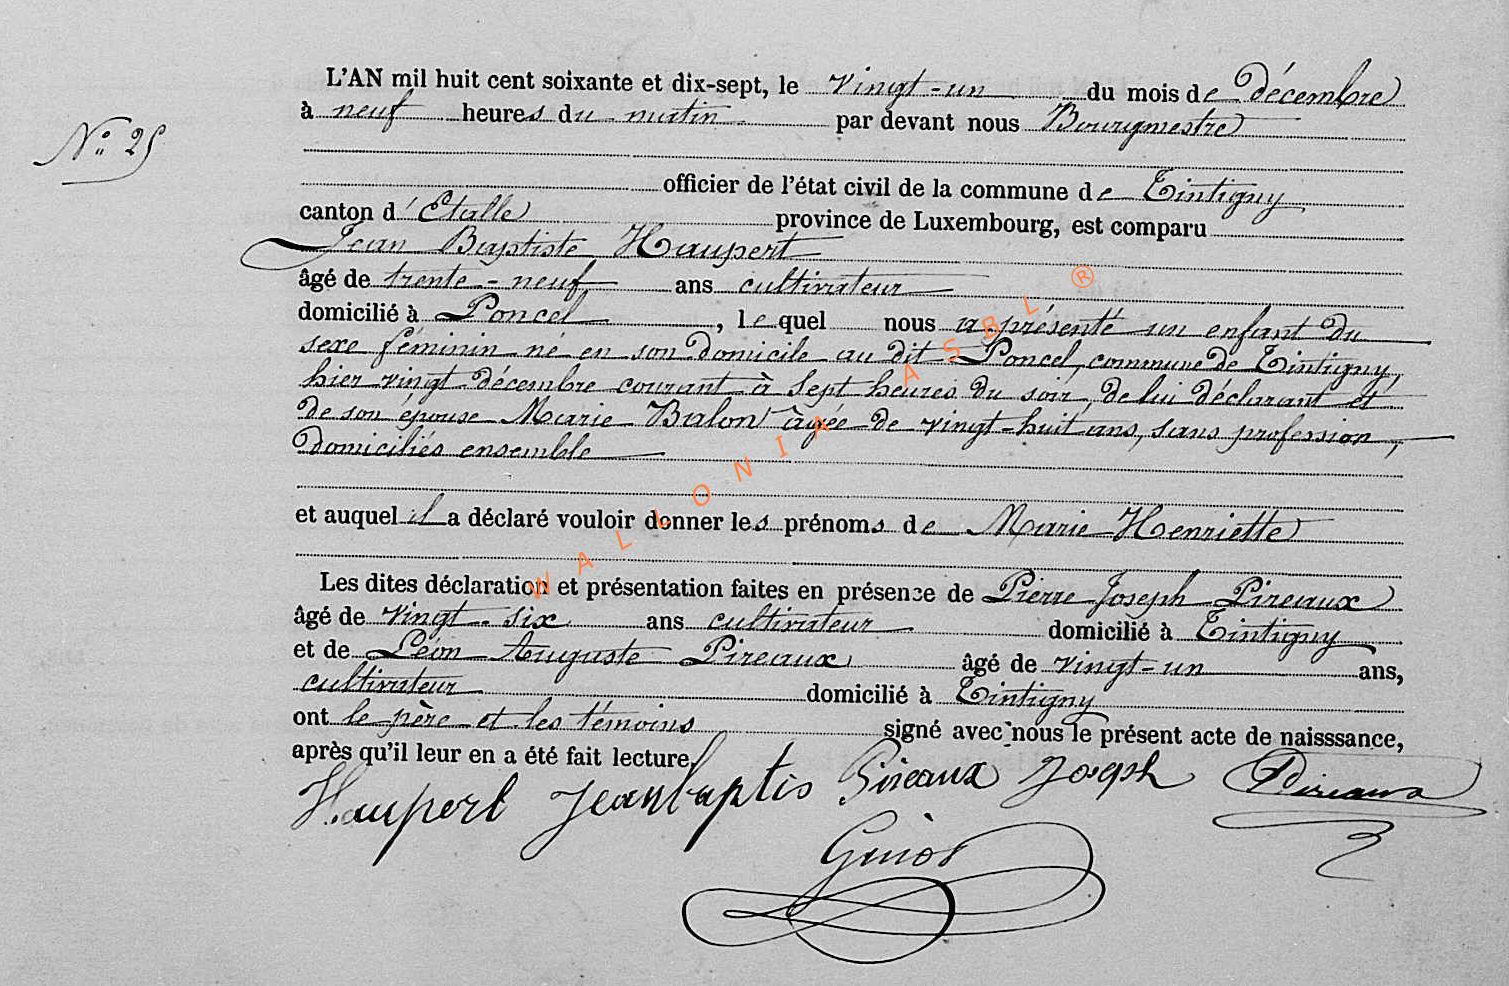 L'AN mil huit cent soixante et dix-sept, le vingt-un du mois de décembre
N° 25
à neuf heures du matin par devant nous Bourgmestre
officier de l'état civil de la commune de Tintigny
canton d'Etalle province de Luxembourg, est comparu
Jean Baptiste Haupert
âgé de trente-neuf ans cultivateur
domicilié à Poncel, lequel nous a présenté un enfant du
sexe féminin né en son domicile au dit Poncel, commune de Tintigny,
hier vingt décembre courant à sept heures du soir, de lui déclarant et
de son épouse Marie Balon âgée de vingt-huit ans, sans profession,
domiciliés ensemble
et auquel il a déclaré vouloir donner les prénoms de Marie Henriette
Les dites déclaration et présentation faites en présence de Pierre Joseph Pireaux
âgé de vingt-six ans cultivateur domicilié à Tintigny
et de Léon Auguste Pireaux âgé de vingt-un ans,
cultivateur domicilié à Tintigny
ont le père et les témoins signé avec nous le présent acte de naisssance,
après qu'il leur en a été fait lecture.
Haupert Jeanbaptis Pireaux Joseph Pireaux
Guiot
WALLONIA ASBL ®